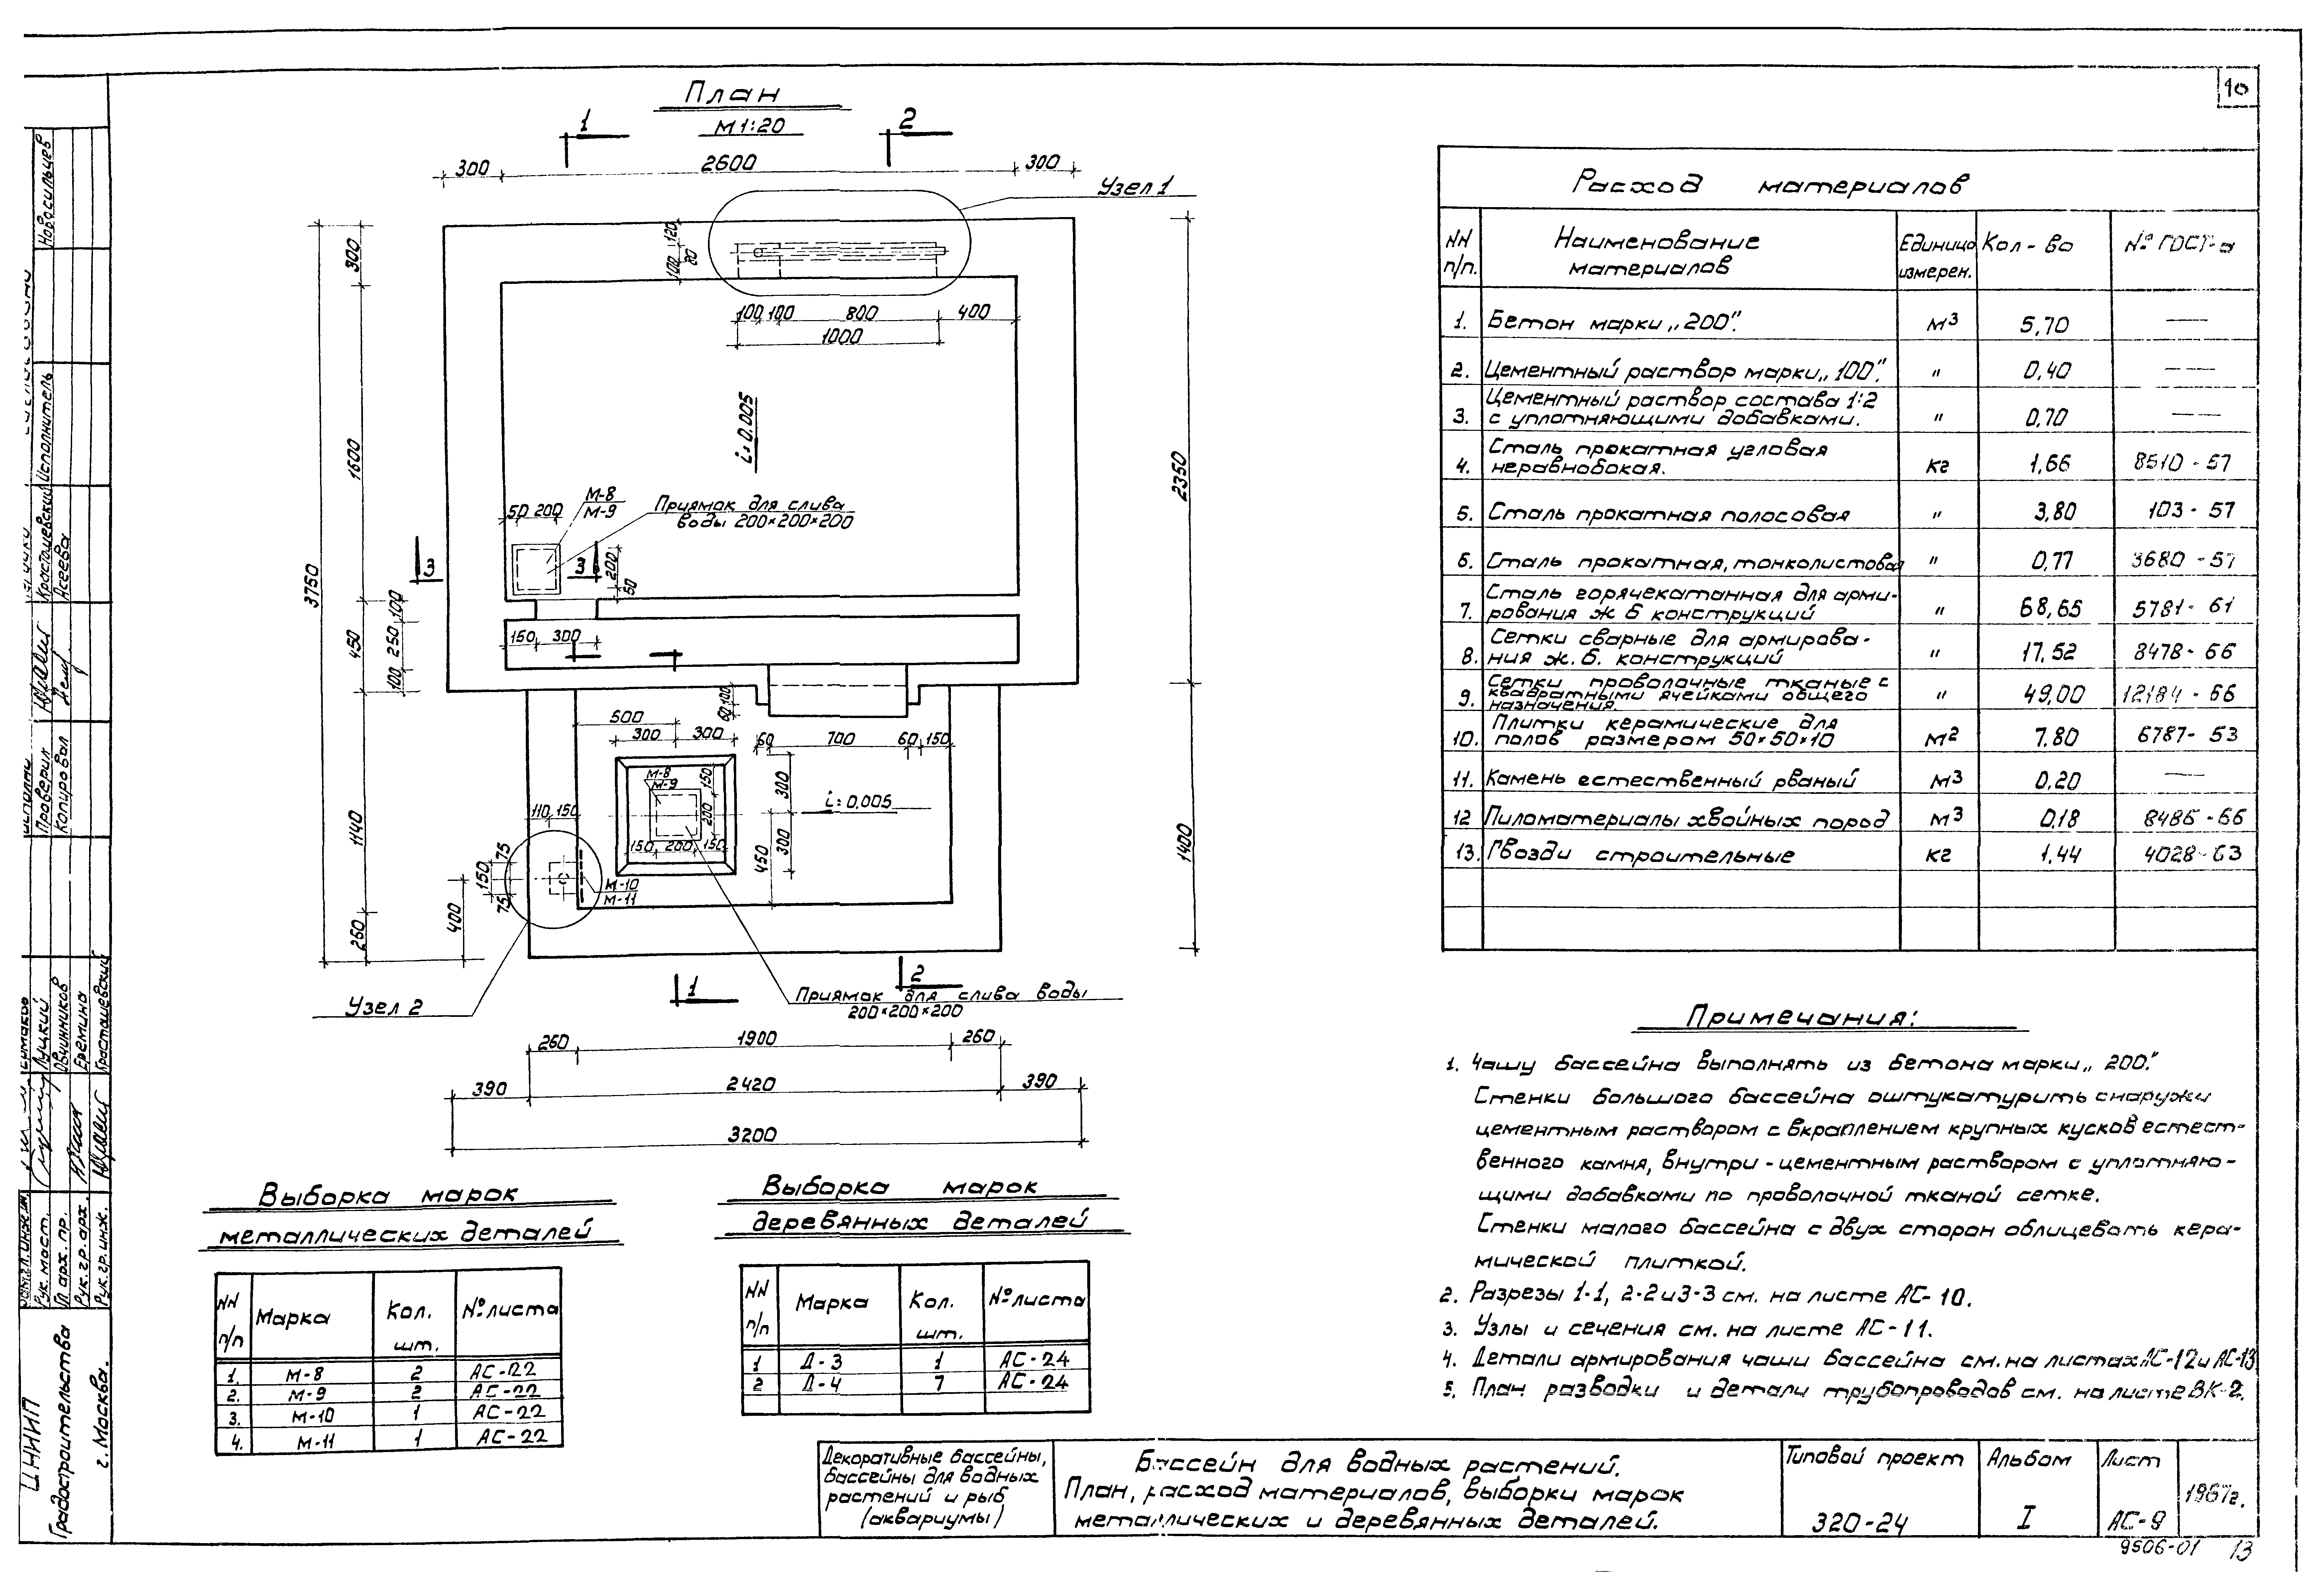 10
План
М 1:20
1
2
300
2600
300
Узел 1
120
80
100
300
100 100 800 400
1000
i=0.005
1600
3750
2350
М-8
М-9
50 200
Приямок для слива
воды 200×200×200
3
3
200
50
100
250
100
450
150 300
100
60
500
300 300
60 700 60 150
М-8
М-9
150
200
150 200 150
300
300
450
i=0,005
1140
1400
110 150
75
150
75
М-10
М-11
400
260
Узел 2
1
2
Приямок для слива воды
200×200×200
260 1900 260
390 2420 390
3200
Расход материалов
NN п/п.
Наименование материалов
Единица измерен.
Кол-во
№ ГОСТ-а
1. Бетон марки „200". м3 5,70 —
2. Цементный раствор марки „100". " 0,40 —
Цементный раствор состава 1:2
3. с уплотняющими добавками. " 0,70 —
Сталь прокатная угловая
4. неравнобокая. кг 1,66 8510-57
5. Сталь прокатная полосовая " 3,80 103-57
6. Сталь прокатная, тонколистовая " 0,77 3680-57
Сталь горячекатанная для арми-
7. рования ж б конструкций " 68,65 5781-61
Сетки сварные для армирова-
8. ния ж.б. конструкций " 17,52 8478-66
Сетки проволочные тканые с
квадратными ячейками общего
9. назначения. " 49,00 12184-66
Плитки керамические для
10. полов размером 50×50×10 м2 7.80 6787-53
11. Камень естественный рваный м3 0,20 —
12 Пиломатериалы хвойных пород м3 0,18 8486-66
13. Гвозди строительные кг 1,44 4028-63
Примечания:
1. Чашу бассейна выполнять из бетона марки „200".
Стенки большого бассейна оштукатурить снаружи
цементным раствором с вкраплением крупных кусков естест-
венного камня, внутри - цементным раствором с уплотняю-
щими добавками по проволочной тканой сетке.
Стенки малого бассейна с двух сторон облицевать кера-
мической плиткой.
2. Разрезы 1-1, 2-2 и 3-3 см. на листе АС-10.
3. Узлы и сечения см. на листе АС-11.
4. Детали армирования чаши бассейна см. на листах АС-12 и АС-13
5. План разводки и детали трубопроводов см. на листе ВК-2.
Выборка марок
металлических деталей
NN п/п Марка Кол. шт. № листа
1. М-8 2 АС-22
2. М-9 2 АС-22
3. М-10 1 АС-22
4. М-11 1 АС-22
Выборка марок
деревянных деталей
NN п/п Марка Кол. шт. № листа
1 Д-3 1 АС-24
2 Д-4 7 АС-24
Декоративные бассейны,
бассейны для водных
растений и рыб
(аквариумы)
Бассейн для водных растений.
План, расход материалов, выборки марок
металлических и деревянных деталей.
Типовой проект
320-24
Альбом
I
Лист
АС-9
1967г.
9506-01 13
Новосильцев
Исполнитель
Красташевский
Асеева
Проверил
Копировал
Луцкий
Овчинников
Еремина
Красташевский
Рук. маст.
Гл. арх. пр.
Рук. гр. арх.
Рук. гр. инж.
ЦНИИП
Градостроительства
г. Москва.